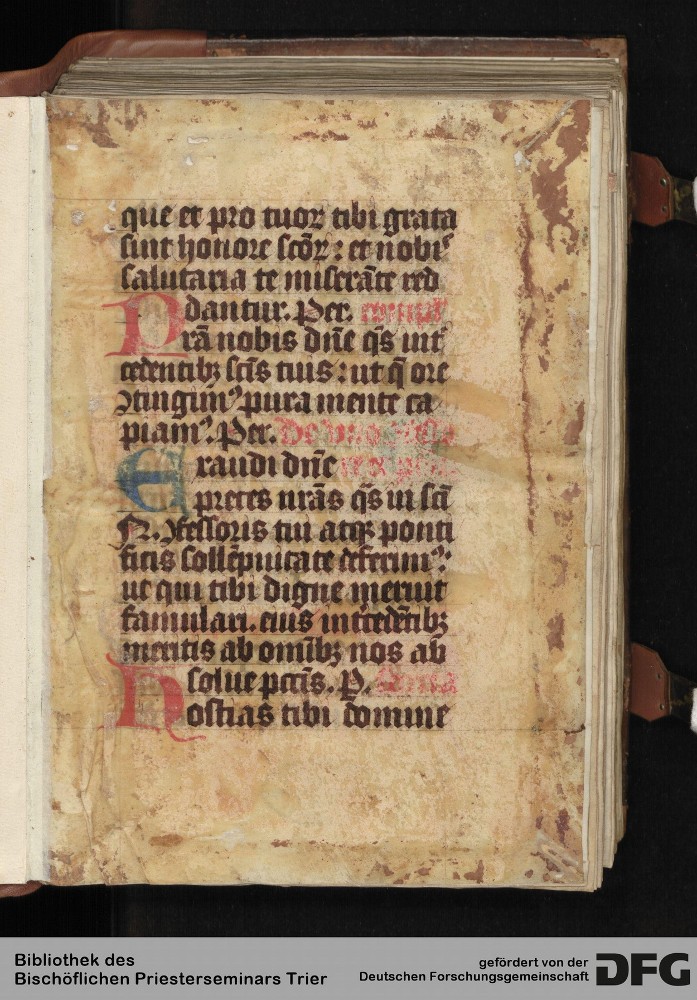 que et pro tuoꝝ tibi grata
sint honore sc̄oꝝ : et nobiˢ
salutaria te miserāte red
dantur. Per.
Prā nobis dn̄e q̄s int̾
cedentibꝫ sc̄is tuis : ut q̄ ore
ꝯtingimꝰ pura mente ca
piamꝰ. Per. De uno
Exaudi dn̄e
preces nr̄as q̄s in sc̄i
N. ꝯfessoris tui atqꝫ ponti
ficis sollēpnitate deferimꝰ :
ut qui tibi digne meruit
famulari. eius int̾cedētibꝫ
meritis ab om̄ibꝫ nos ab
solue pcc̄is. P.
Hostias tibi domine
Bibliothek des
Bischöflichen Priesterseminars Trier
gefördert von der
Deutschen Forschungsgemeinschaft
DFG